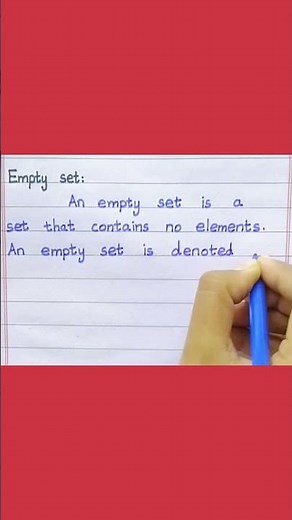 Empty set:
An empty set is a
set that contains no elements.
An empty set is denoted